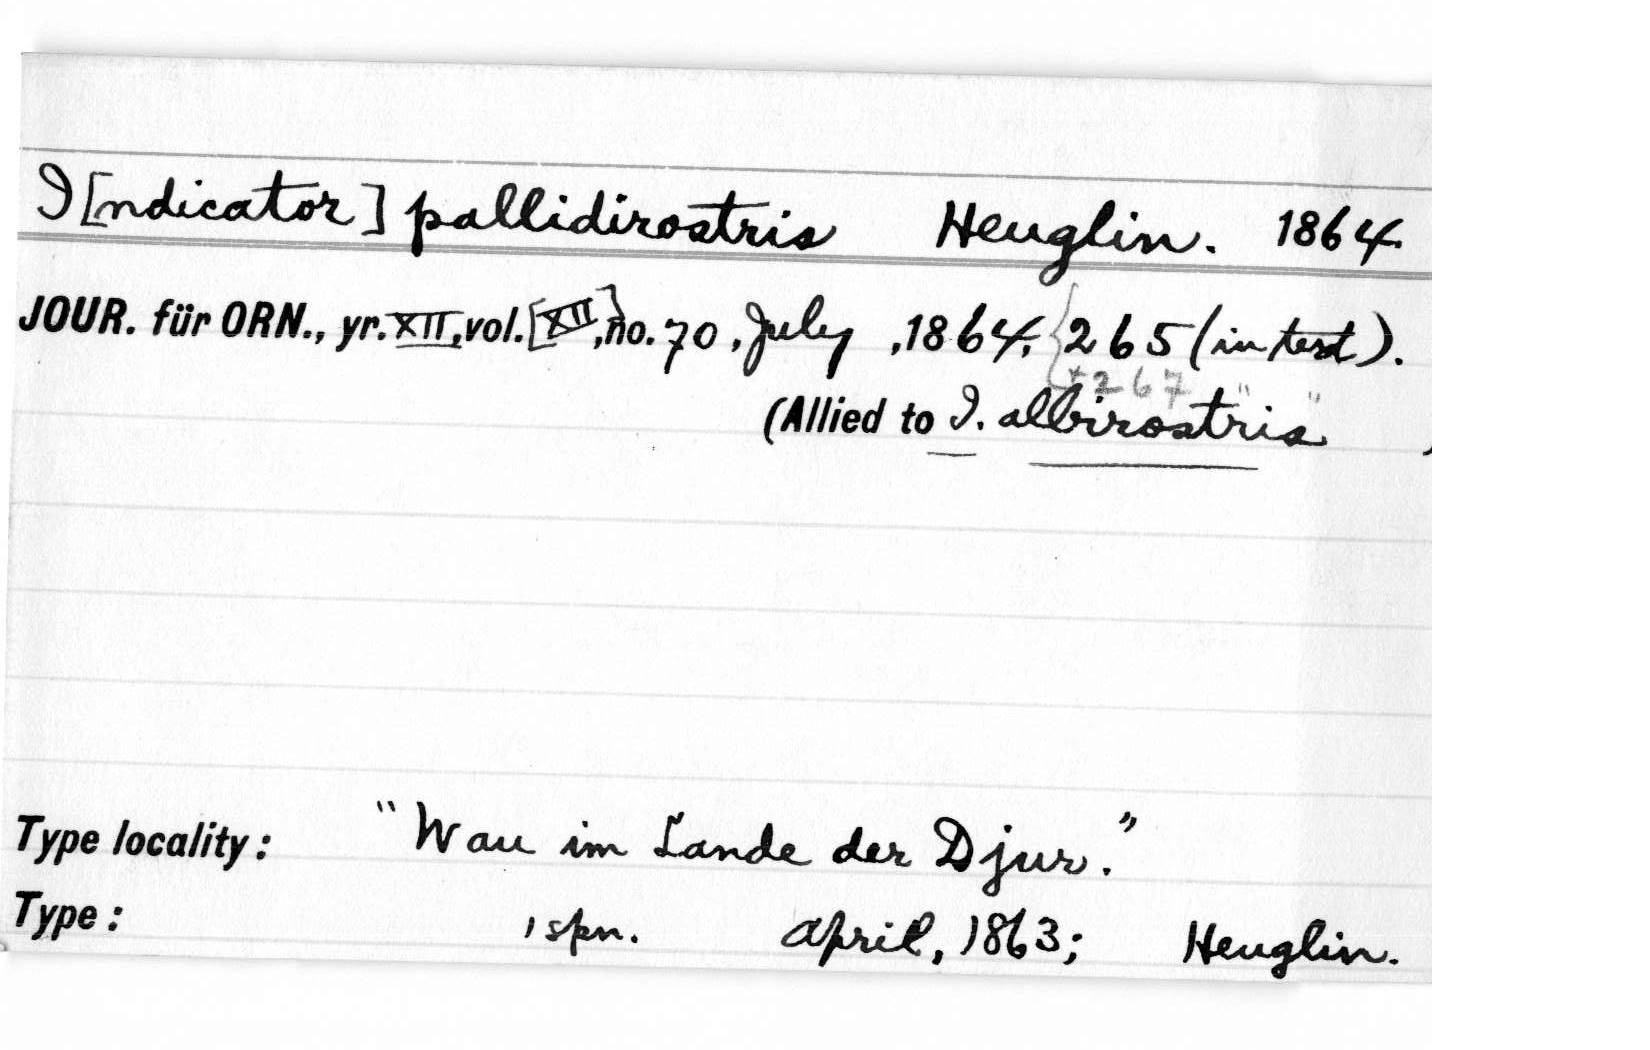 I[ndicator] pallidirostris Heuglin. 1864.
JOUR. für ORN., yr. XII, vol. [XII], no. 70, July, 1864, 265 (in text).
+ 267
(Allied to I. albirostris " " )
Type locality: "Wau im Lande der Djur."
Type: 1 spn. April, 1863; Heuglin.